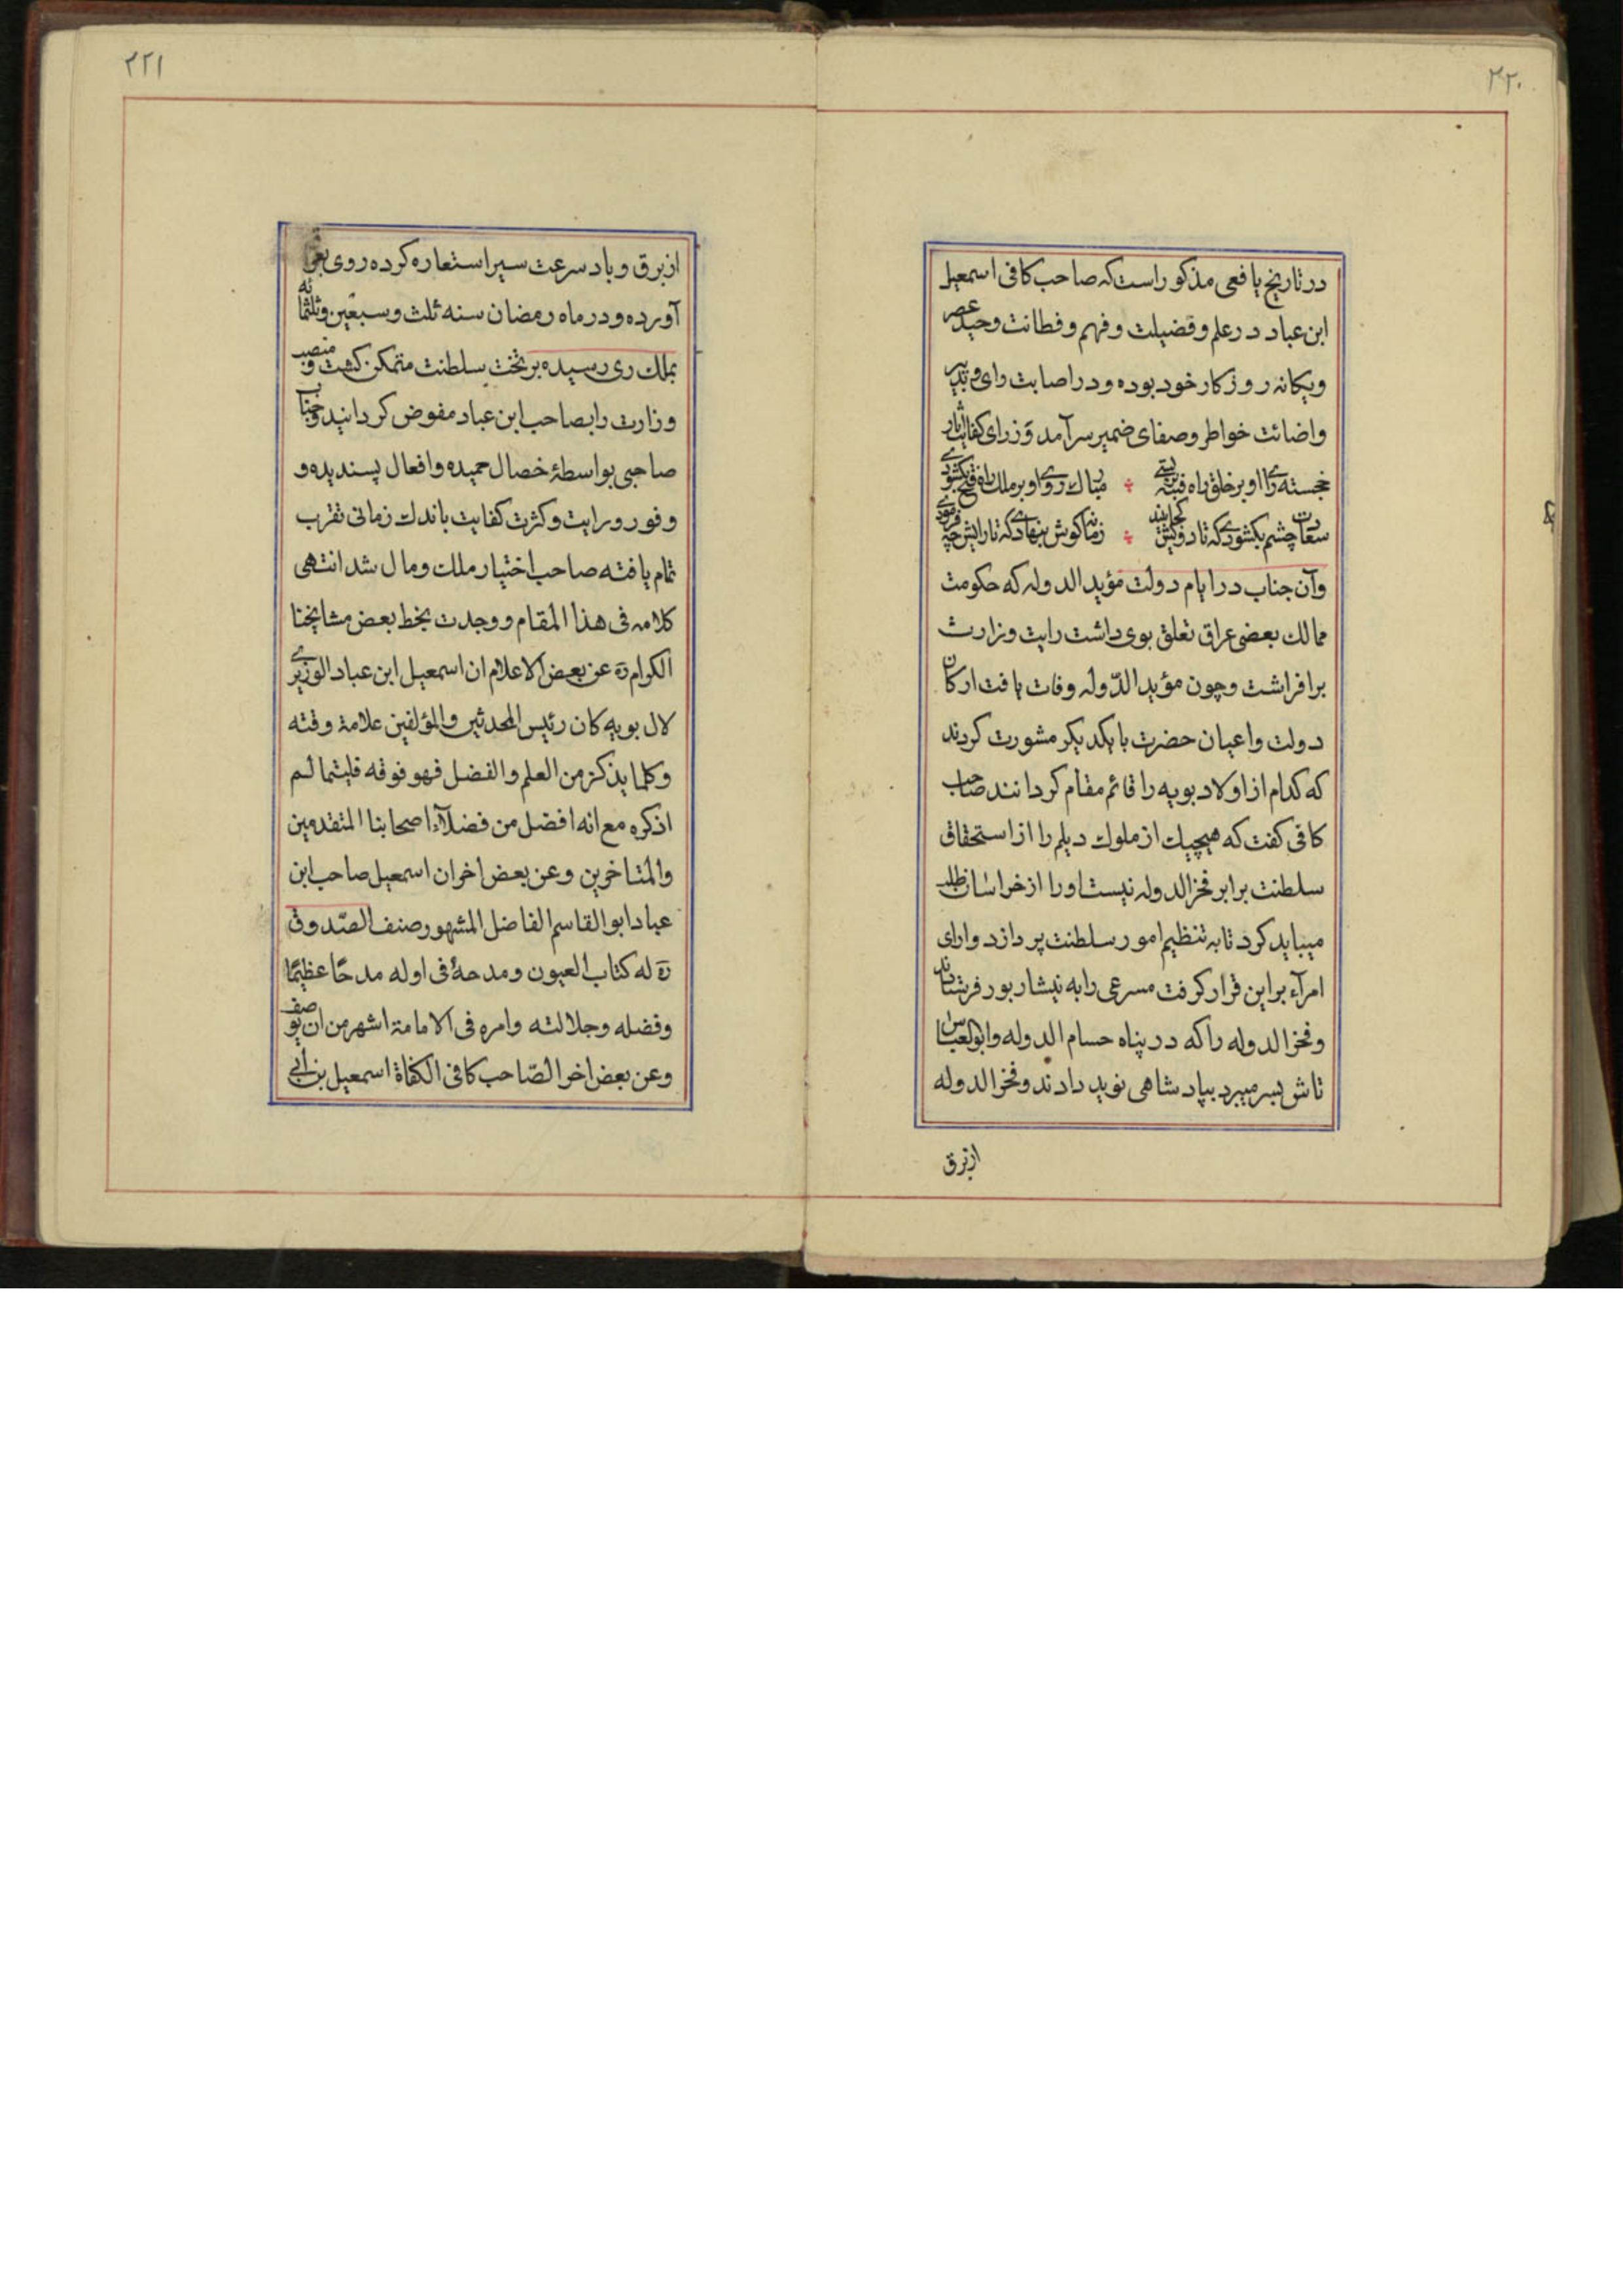 ۲۲۰
در تاریخ یافعی مذکور است که صاحب کافی اسمعیل
ابن عباد در علم و فضیلت و فهم و فطانت وحید عصر
ویکانه روزکار خود بوده و در اصابت رای و تدبیر
واضائت خواطر و صفای ضمیر سرآمد وزرای کفایت آثار
خجسته رای او بر خلق راه فتنه بستی ؞ مبارک روی او بر ملک راه فتح بکشودی
سعادت چشم بکشودی که تا رویش کجا بیند ؞ زمانه کوش بنهادی که تا رایش چه فرمودی
وآن جناب در ایام دولت مؤید الدوله که حکومت
ممالک بعضی عراق تعلق بوی داشت رایت وزارت
برافراشت وچون مؤید الدّوله وفات یافت ارکان
دولت واعیان حضرت با یکدیکر مشورت کردند
که کدام از اولاد بویه را قائم مقام کردانند صاحب
کافی کفت که هیچیک از ملوک دیلم را از استحقاق
سلطنت برابر فخر الدوله نیست او را از خراسان طلب
میباید کرد تا به تنظیم امور سلطنت پردازد وارای
امرآء بر این قرار کرفت مسرعی را به نیشابور فرستادند
وفخر الدوله را که در پناه حسام الدوله وابوالعباس
تاش بسر میبرد بپادشاهی نوید دادند وفخر الدوله
از برق
۲۲۱
از برق و باد سرعت سیر استعاره کرده روی بعراق
آورده و در ماه رمضان سنه ثلث وسبعین وثلثمائه
بملک ری رسیده بر تخت سلطنت متمکن کشت و منصب
وزارت را بصاحب ابن عباد مفوض کردانید وجناب
صاحبی بواسطهٔ خصال حمیده وافعال پسندیده و
وفور درایت وکثرت کفایت باندک زمانی تقرب
تمام یافته صاحب اختیار ملک ومال شد انتهی
کلامه فی هذا المقام ووجدت بخط بعض مشایخنا
الکرام ره عن بعض الاعلام ان اسمعیل ابن عباد الوزیر
لال بویه کان رئیس المحدثین والمؤلفین علامة وقته
وکلما یذکر من العلم والفضل فهو فوقه فلیثما لم
اذکره مع انه افضل من فضلآء اصحابنا المتقدمین
والمتاخرین وعن بعض اخر ان اسمعیل صاحب ابن
عباد ابو القاسم الفاضل المشهور صنف الصّدوق
ره له کتاب العیون ومدحهٔ فی اوله مدحًا عظیمًا
وفضله وجلالته وامره فی الامامة اشهر من ان یوصف
وعن بعض اخر الصّاحب کافی الکفاة اسمعیل بن ابی